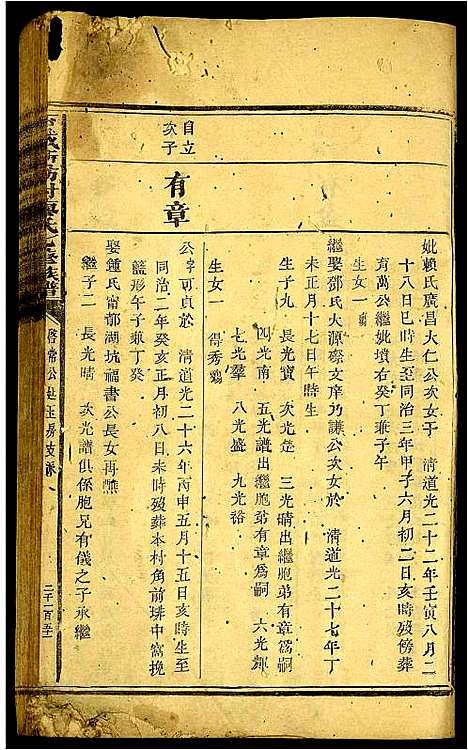 妣賴氏廣昌大仁公次女于　清道光二十二年壬寅八月二
十八日巳時生至同治三年甲子六月初二日亥時歿傍葬
育萬公繼妣墳右癸丁兼子午
生女一
繼娶鄧氏大源　文庠乃謙公次女於　清道光二十七年丁
未正月十七日午時生
生子九　長光寶　次光楚　三光晴出繼胞弟有章為嗣
四光南　五光譜出繼胞弟有章為嗣　六光輝
七光羣　八光盛　九光裕
生女一　得秀
自立次子
有章
公字可貞於　清道光二十六年丙申五月十五日亥時生至
同治二年癸亥正月初八日未時歿葬本村角前排中窩挽
籃形午子兼丁癸
娶鍾氏甯都湖坑福書公長女再醮
繼子二　長光晴　次光譜俱係胞兄有儀之子承繼
氏　族譜
啓常公